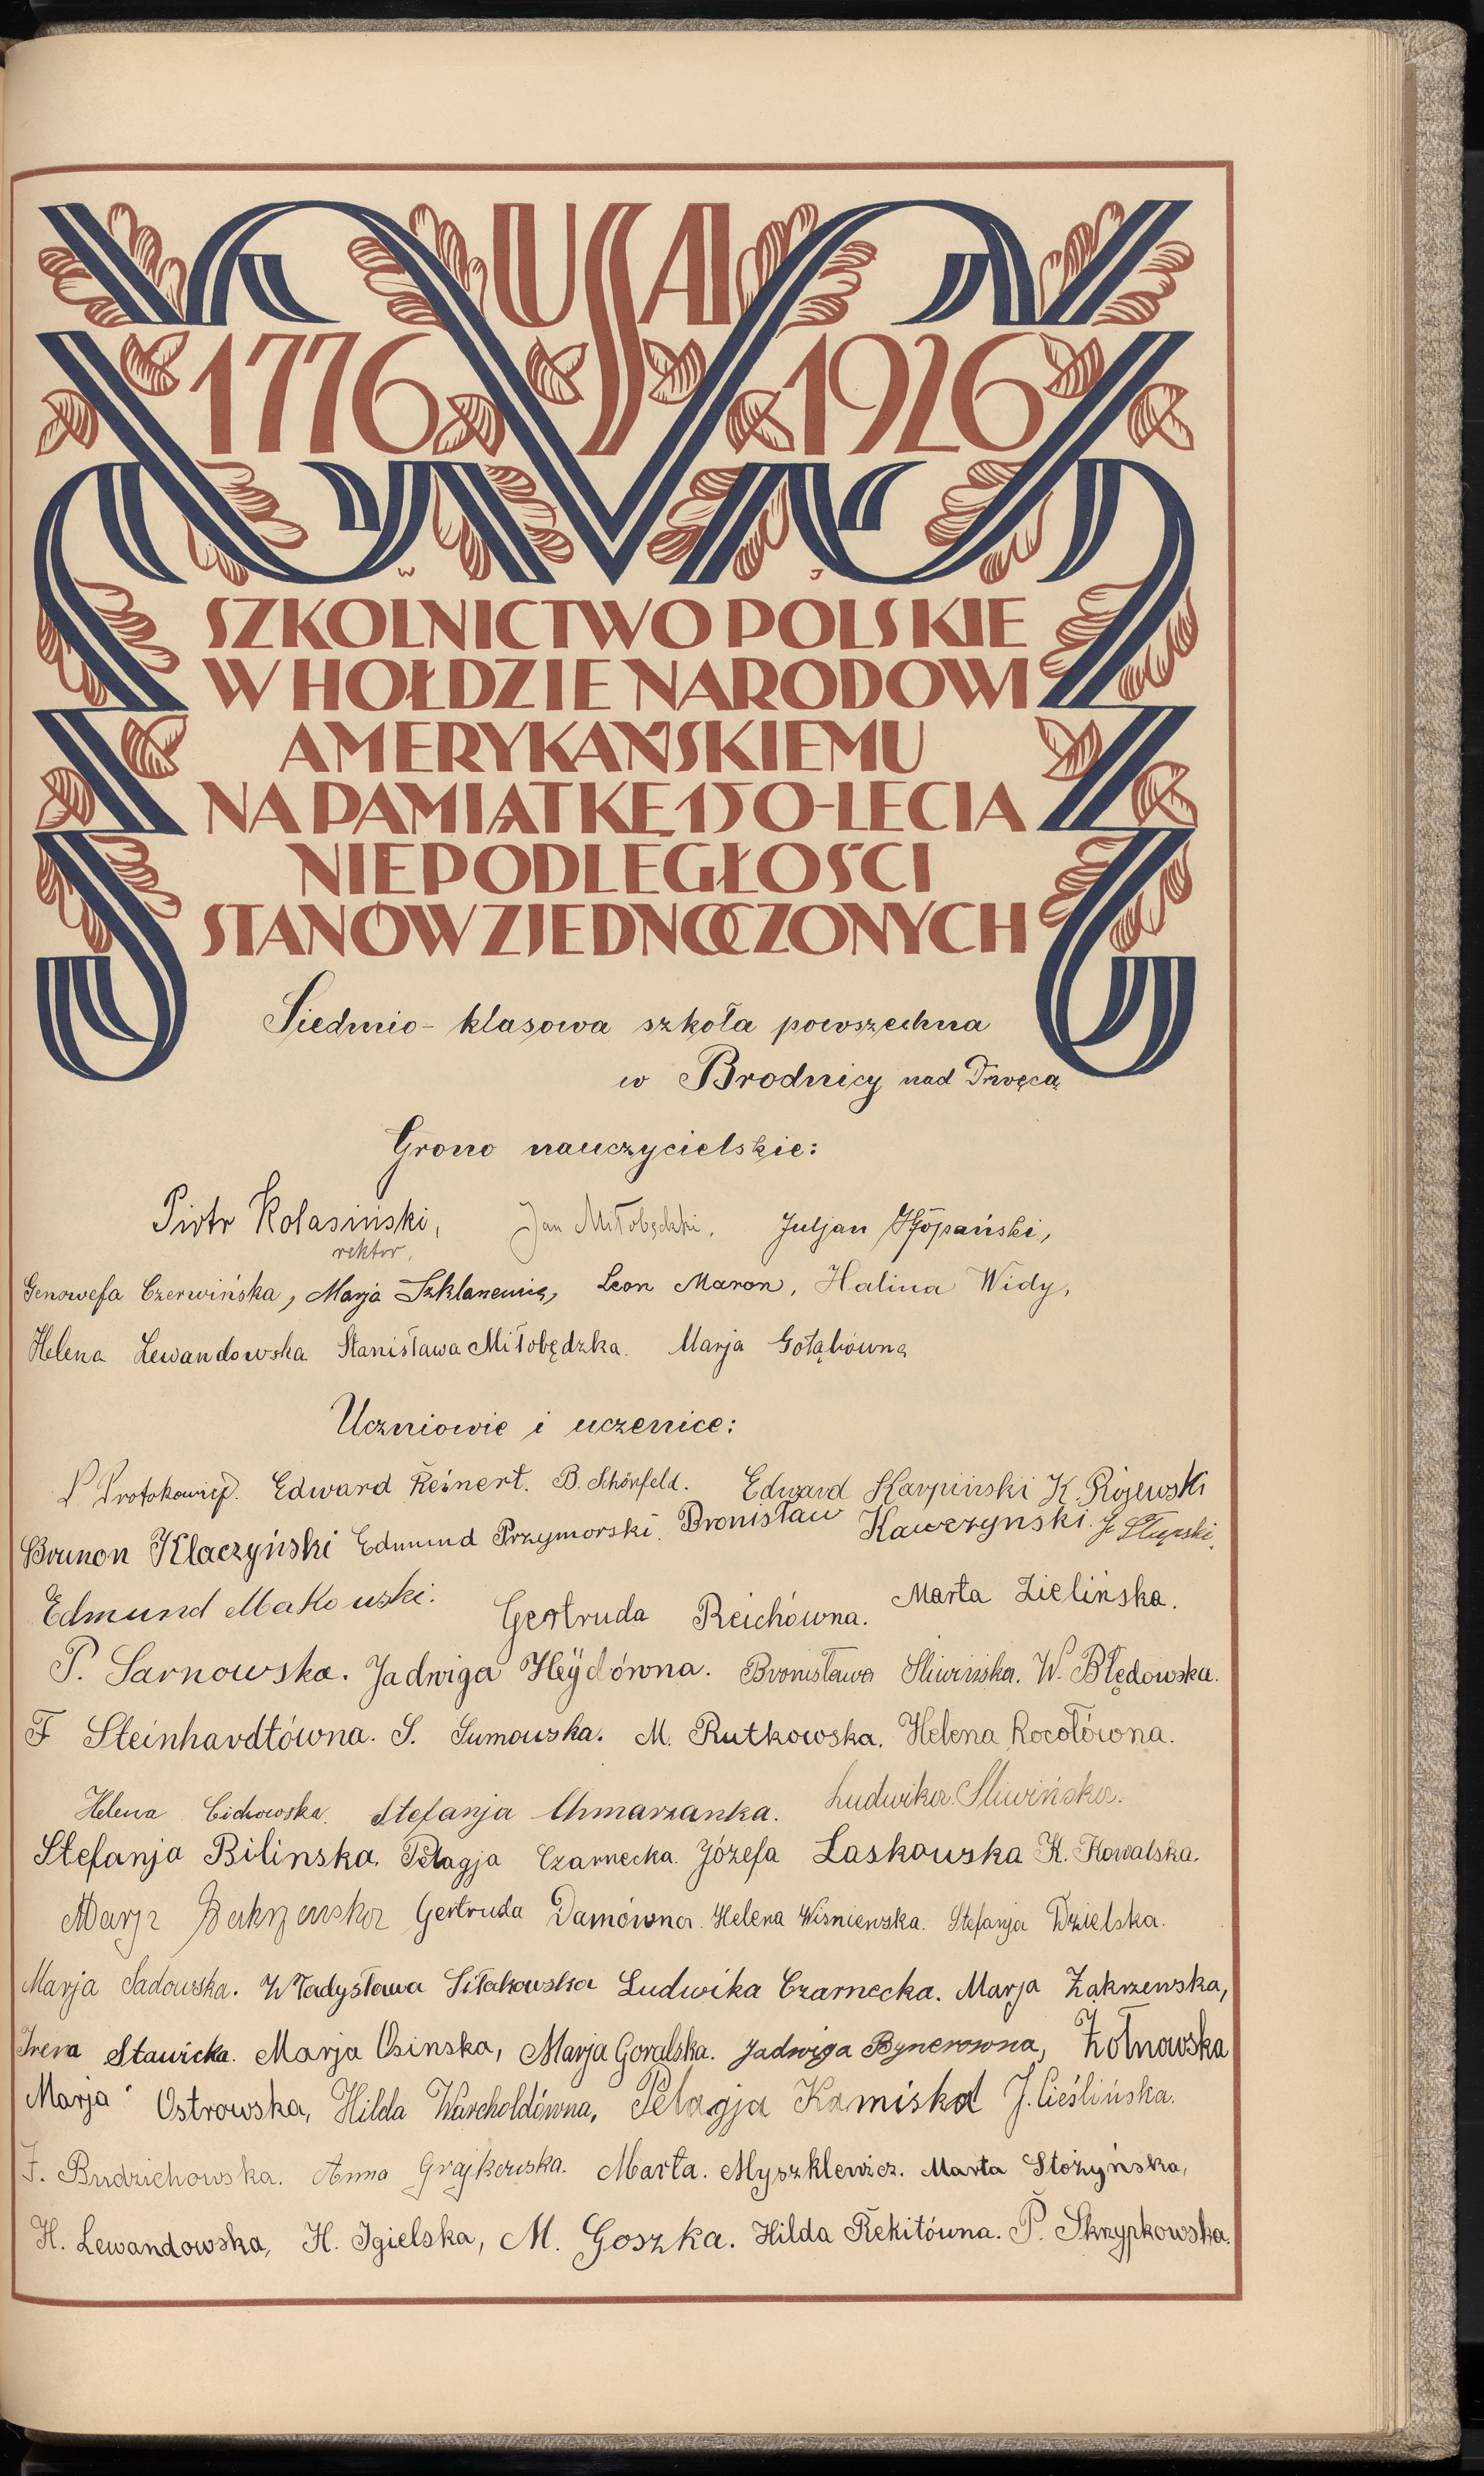 USA
1776 1926
W J
SZKOLNICTWO POLSKIE
W HOŁDZIE NARODOWI
AMERYKAŃSKIEMU
NA PAMIĄTKĘ 150-LECIA
NIEPODLEGŁOŚCI
STANÓW ZJEDNOCZONYCH
Siedmio-klasowa szkoła powszechna
w Brodnicy nad Drwęcą
Grono nauczycielskie:
Piotr Kolasiński, Jan Miłobędzki, Juljan
rektor,
Genowefa Czerwińska, Marja Leon Maron, Halina Widy,
Helena Lewandowska Stanisława Miłobędzka. Marja Gołąbówna
Uczniowie i uczenice:
Edward Reinert. B. Schönfeld. Edward Karpiński K. Rojewski
Brunon Klaczyński Edmund Przymorski. Bronisław Kawczynski. J. Słupski.
Edmund Makowski. Gertruda Reichówna. Marta Zielińska.
P. Sarnowska. Jadwiga Heÿdówna. Bronisława Sliwińska. W. Błędowska.
F Steinhardtówna. S. Sumowska. M. Rutkowska. Helena Rocołówna.
Helena Cichowska. Stefanja Chmarzanka. Ludwika Sliwińska.
Stefanja Bilinska. Pelagja Czarnecka. Józefa Laskowska K. Kowalska.
Marja Gertruda Damówna. Helena Wisniewska. Stefanja Dzielska.
Marja Sadowska. Władysława Siłakowska Ludwika Czarnecka. Marja Zakrzewska,
Irena Stawicka. Marja Osinska, Marja Goralska. Jadwiga Bynerowna, Żołnowska
Marja Ostrowska, Hilda Warcholdówna, Pelagja Kamiska J. Cieślińska.
F. Budzichowska. Anna Grajkowska. Marta. Myszklewicz. Marta Stożyńska,
H. Lewandowska, H. Igielska, M. Goszka. Hilda Rekitówna. P. Skrzypkowska.